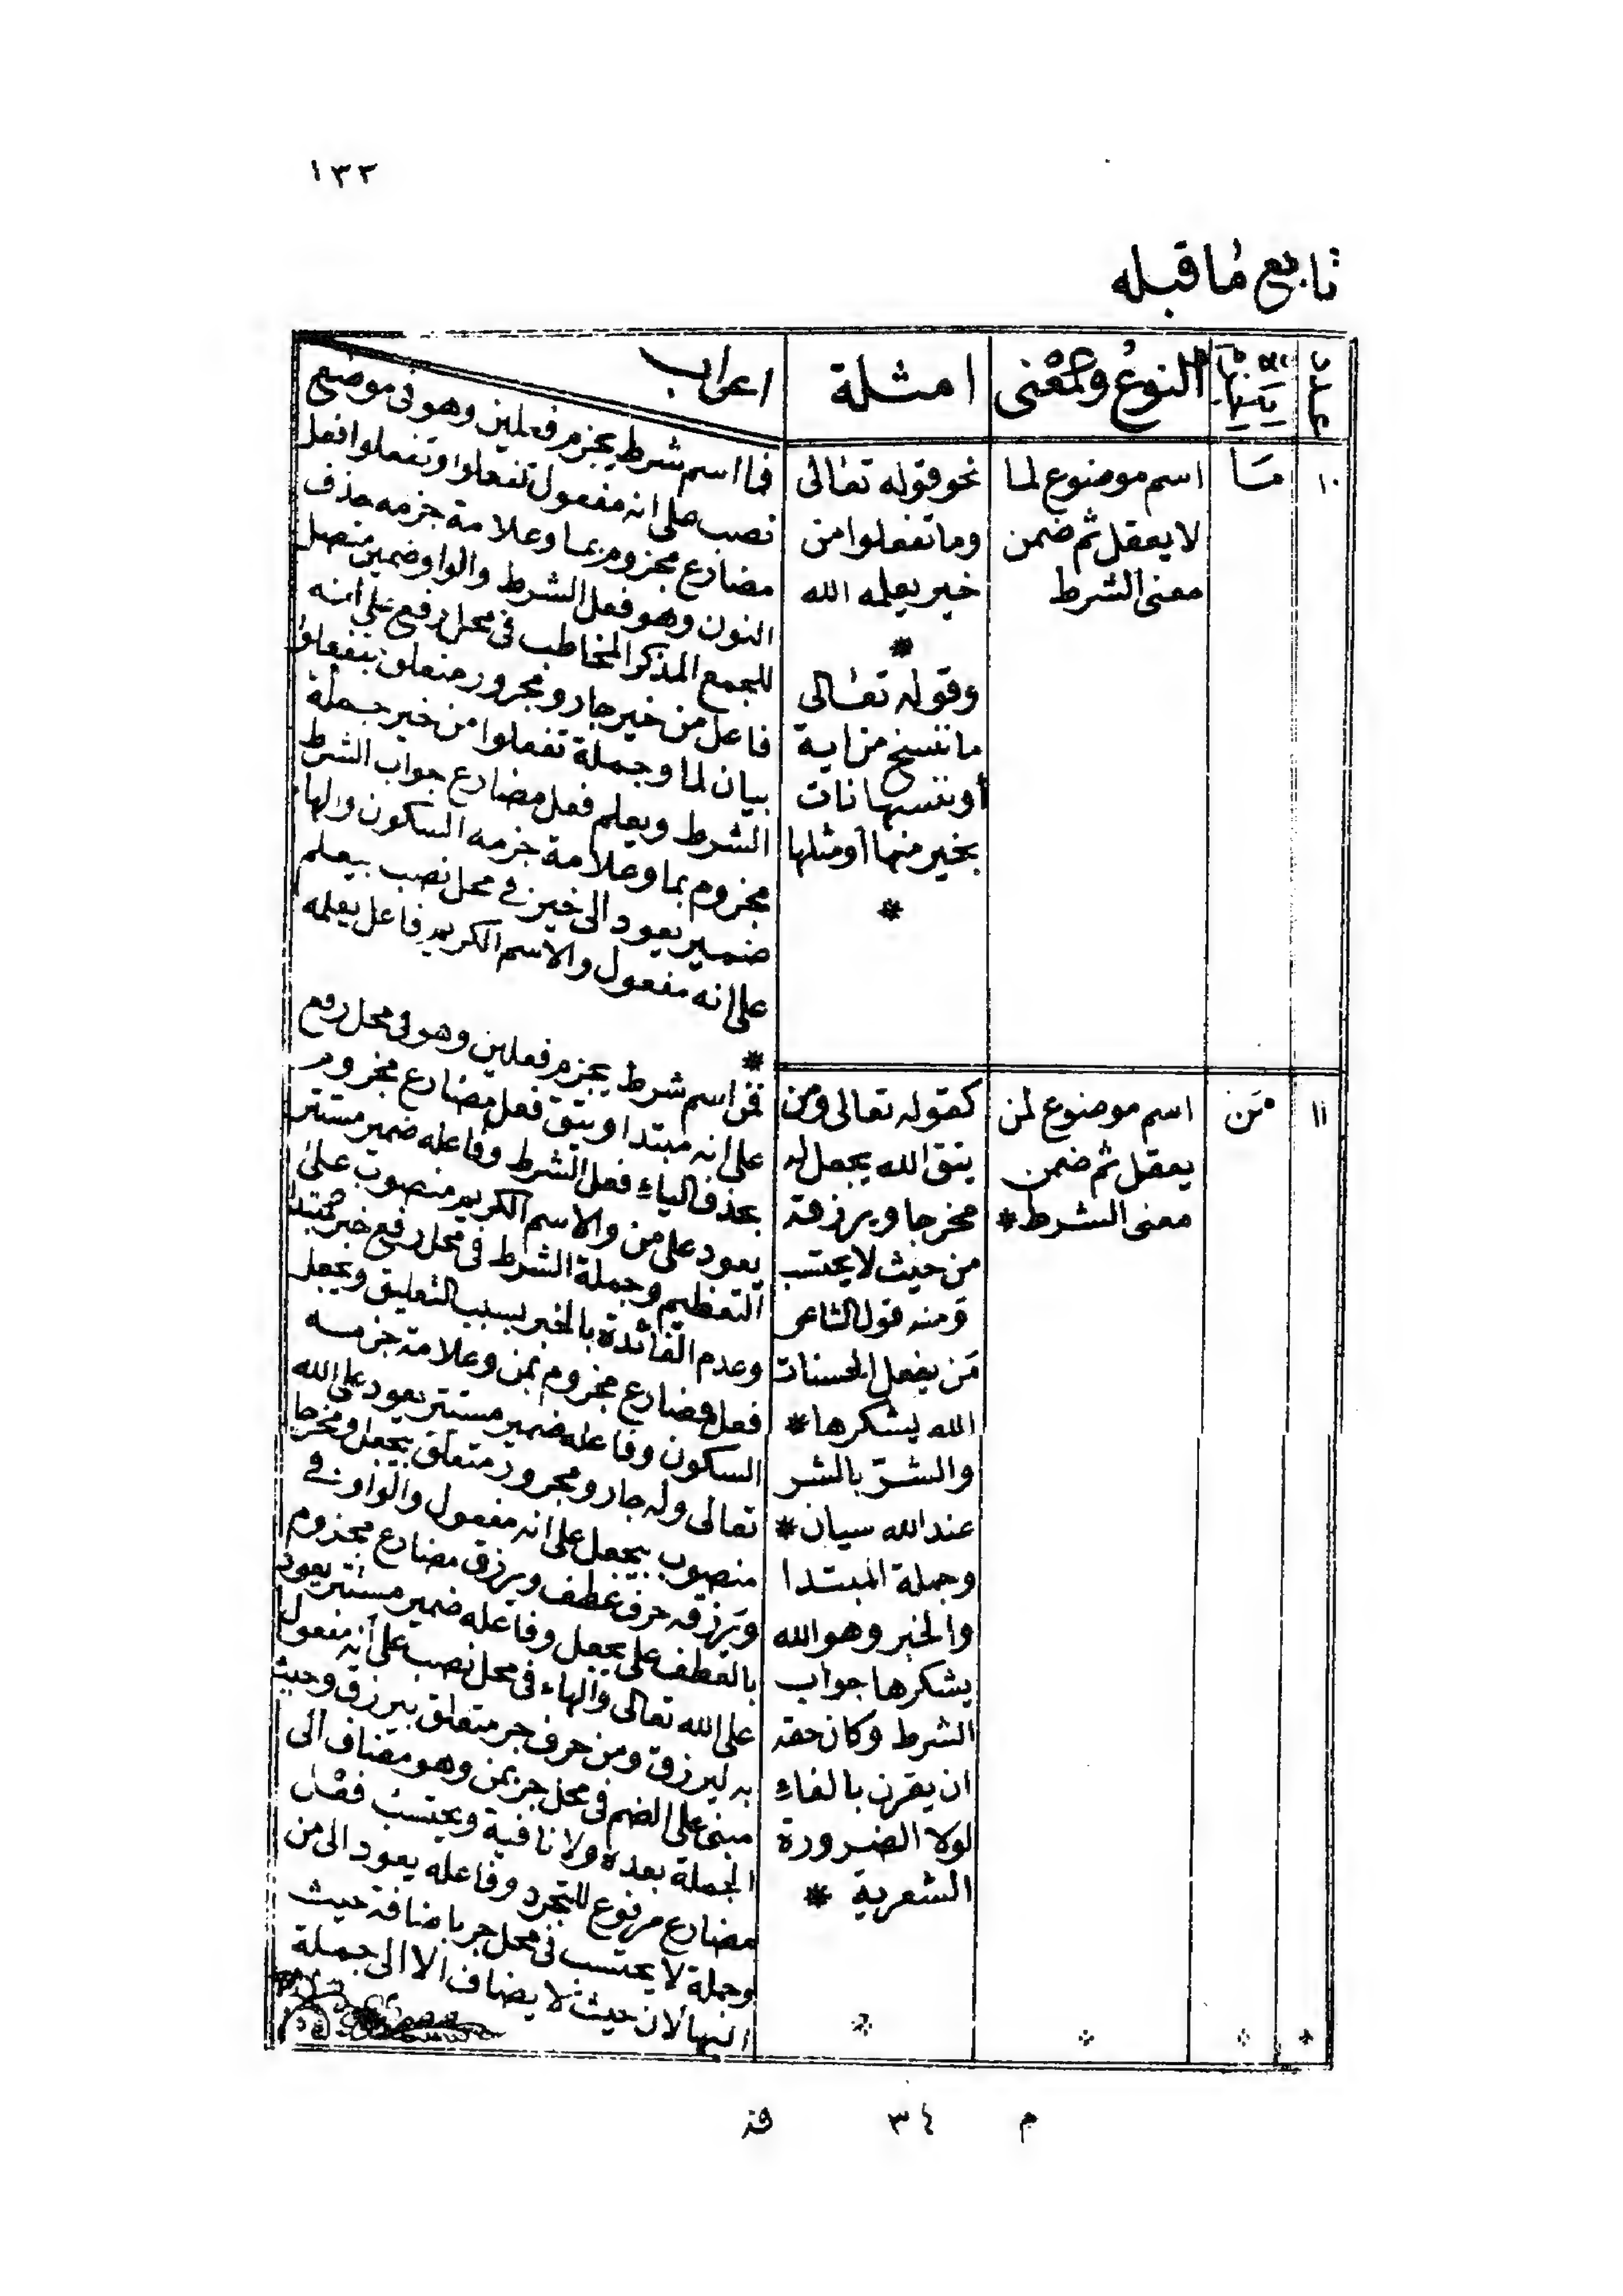 ١٣٣
تابع ما قبله
عدد
النوع والمعنى
امثلة
اعراب
١٠
مَا
اسم موضوع لما
لا يعقل ثم ضمن
معنى الشرط
نحو قوله تعالى
وما تفعلوا من
خير يعلمه الله
*
وقوله تعالى
ما ننسخ من اية
أو ننسها نات
بخير منها أو مثلها
*
فما اسم شرط يجزم فعلين وهو فى موضع
نصب على انه مفعول تفعلوا وتفعلوا فعل
مضارع مجزوم بما وعلامة جزمه حذف
النون وهو فعل الشرط والواو ضمير متصل
للجمع المذكر المخاطب فى محل رفع على انه
فاعل من خير جار ومجرور متعلق بتفعلوا
بيان لما وجملة تفعلوا من خير جملة
الشرط ويعلم فعل مضارع جواب الشرط
مجزوم بما وعلامة جزمه السكون والها
ضمير يعود الى خير فى محل نصب بيعلم
على انه مفعول والاسم الكريم فاعل يعلمه
*
١١
مَن
اسم موضوع لمن
يعقل ثم ضمن
معنى الشرط *
كقوله تعالى ومن
يتق الله يجعل له
مخرجا ويرزقه
من حيث لا يحتسب
ومنه قول الشاعر
مَن يفعل الحسنات
الله يشكرها *
والشرّ بالشر
عند الله سيان *
وجملة المبتدا
والخبر وهو الله
يشكرها جواب
الشرط وكان حقه
ان يقرن بالفاء
لولا الضرورة
الشعرية *
فمن اسم شرط يجزم فعلين وهو فى محل رفع
على انه مبتدا ويتق فعل مضارع مجزوم
بحذف الياء فعل الشرط وفاعله ضمير مستتر
يعود على من والاسم الكريم منصوب على
التعظيم وجملة الشرط فى محل رفع خبر مبتدا
وعدم الفائدة بالخبر بسبب التعليق ويجعل
فعل مضارع مجزوم بمن وعلامة جزمه
السكون وفاعله ضمير مستتر يعود على الله
تعالى وله جار ومجرور متعلق بيجعل ومخرجا
منصوب بيجعل على انه مفعول والواو فى
ويرزقه حرف عطف ويرزق مضارع مجزوم
بالعطف على يجعل وفاعله ضمير مستتر يعود
على الله تعالى والهاء فى محل نصب على أنه مفعول
به ليرزق ومن حرف جر متعلق بيرزق وحيث
مبنى على الضم فى محل جر بمن وهو مضاف الى
الجملة بعده ولا نافية ويحتسب فعل
مضارع مرفوع للتجرد وفاعله يعود الى من
وجملة لا يحتسب فى محل جر باضافة حيث
اليها لان حيث لا يضاف الا الى جملة
م ٣٤